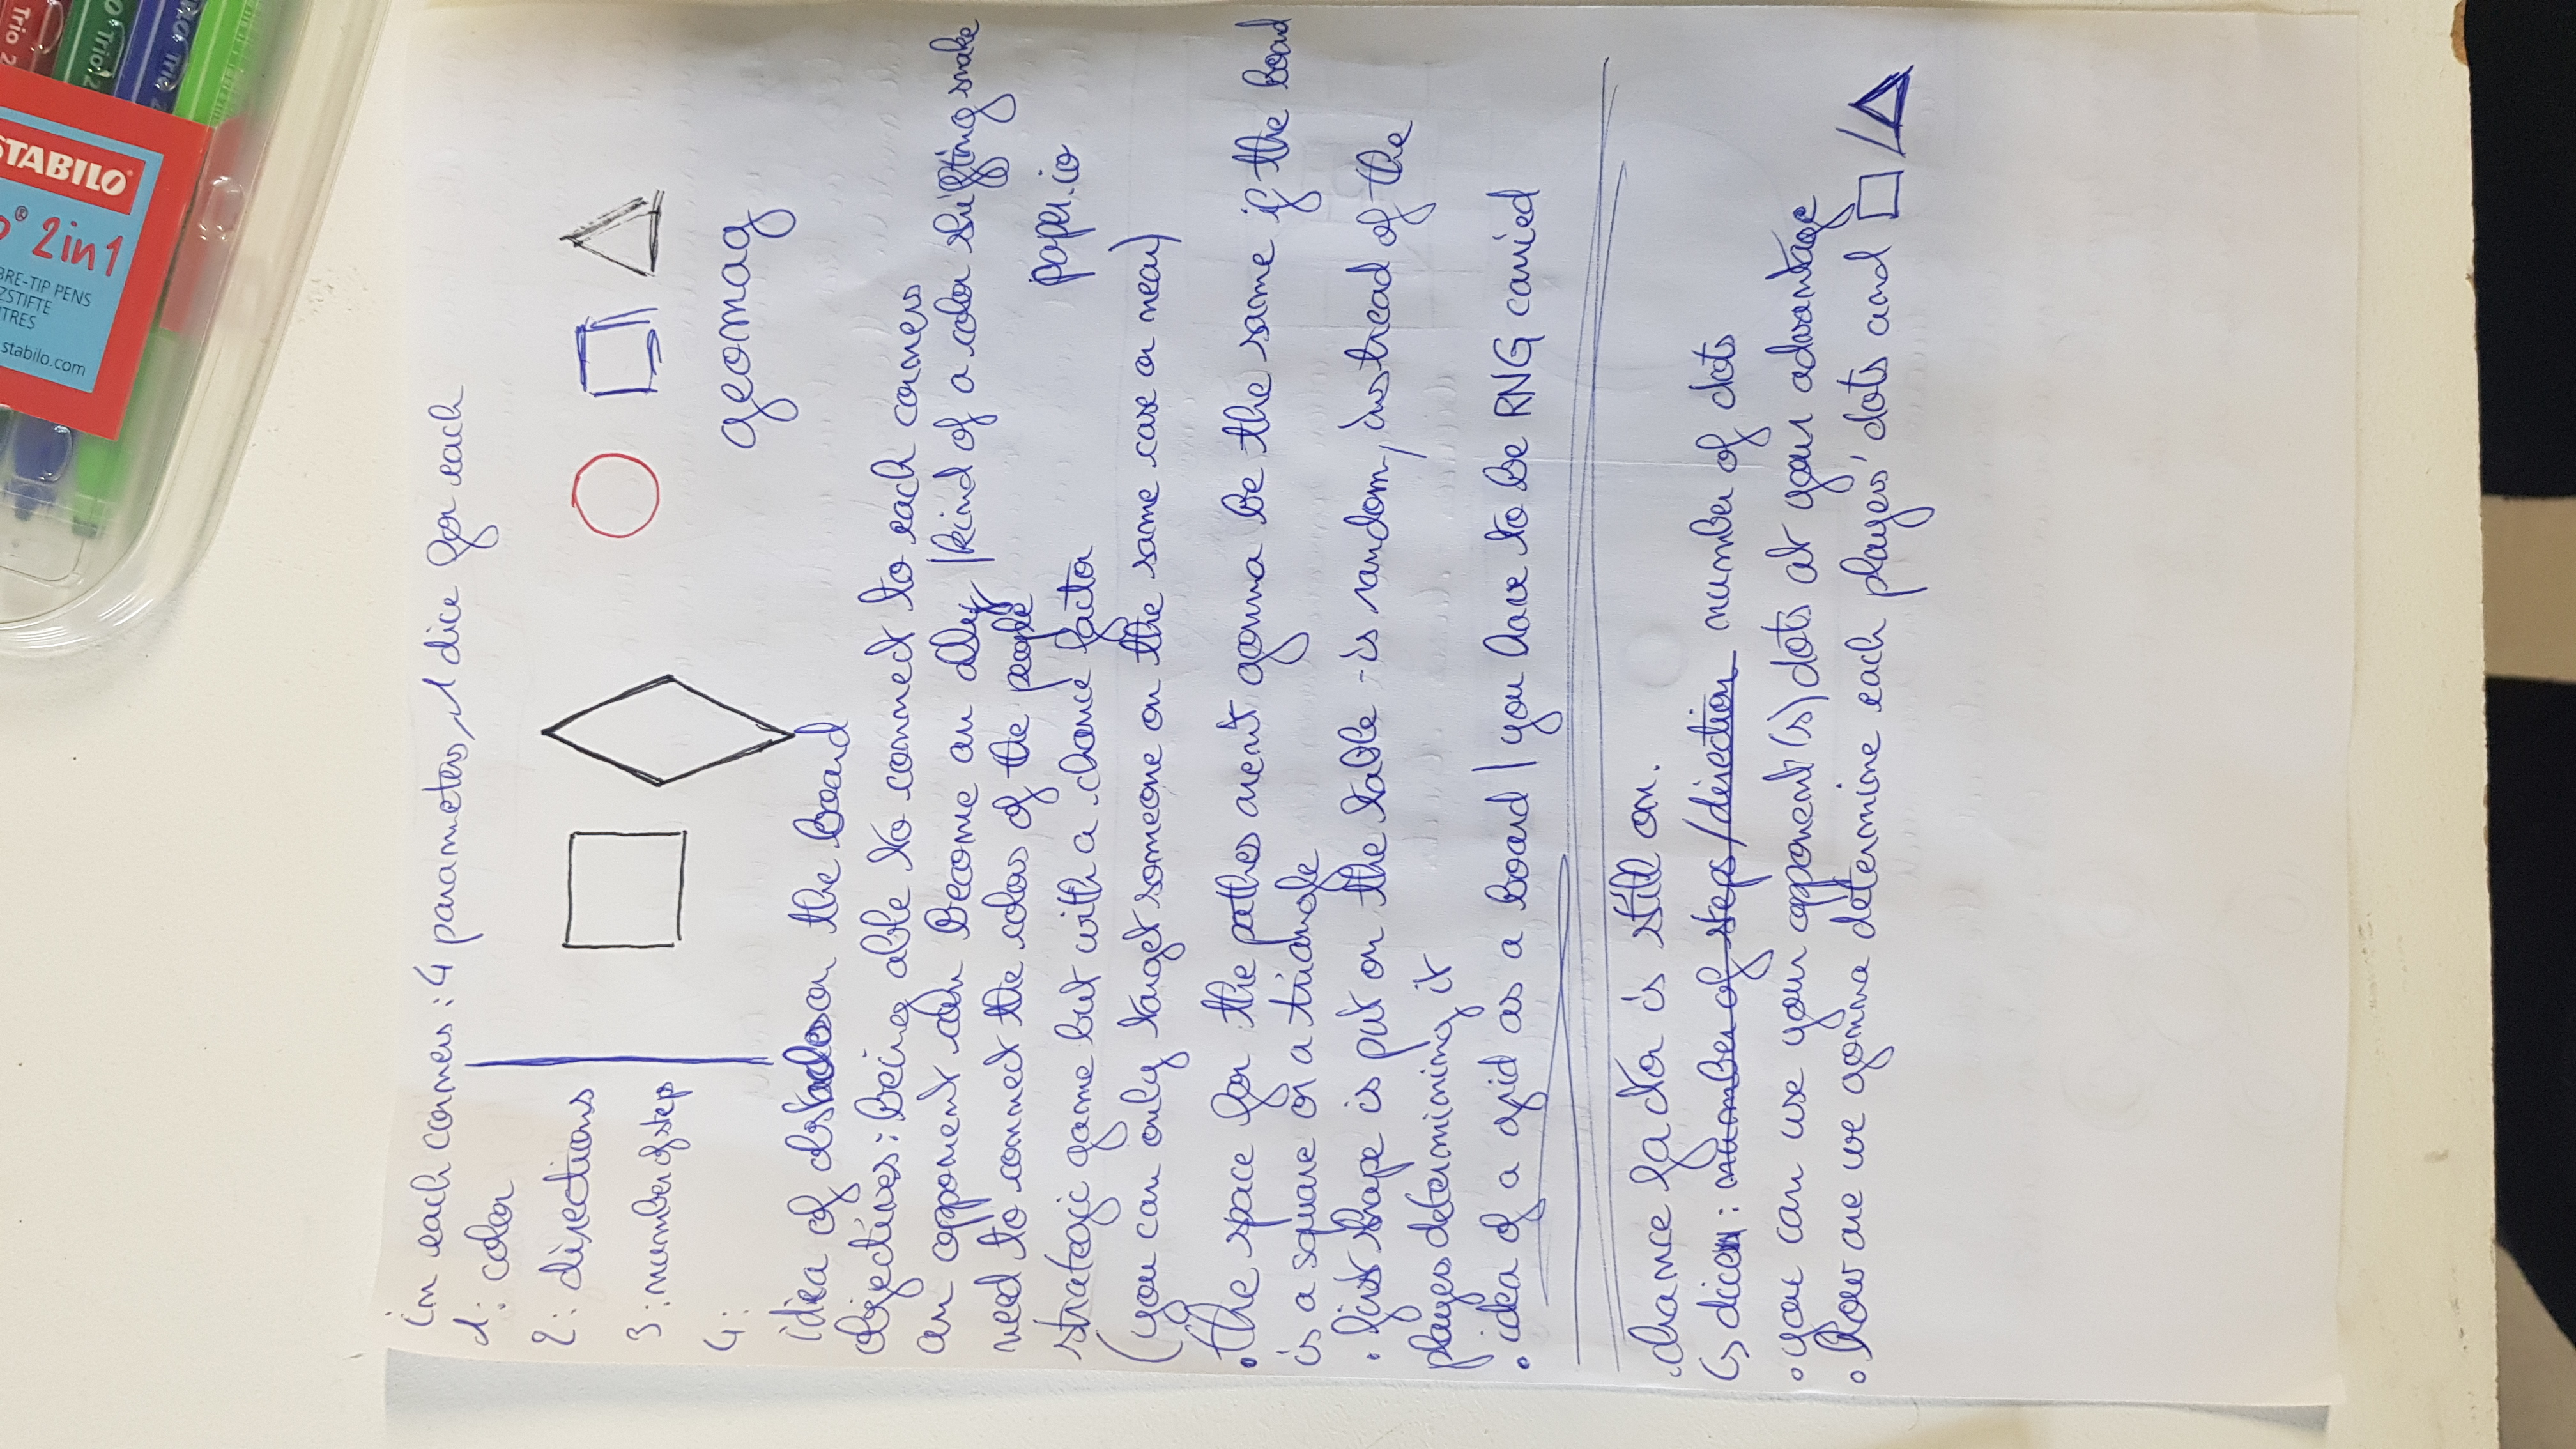 STABILO
2 in 1
BRE-TIP PENS
ZSTIFTE
TRES
stabilo.com
Trio 2
Trio 2
Trio 2
in each corners : 4 parameters, 1 dice for each
1: color
2: directions
3: number of steps
4:
geomag
idea of obstacles on the board
objectives: being able to connect to each corners
an opponent can become an ally / kind of a color shifting snake
need to connect the colors of the people
paper.io
strategic game but with a chance factor
(you can only target someone on the same case or near)
. the space for the pathes arent gonna be the same if the board
is a square or a triangle
. first shape is put on the table - is random, instread of the
players determining it
. idea of a grid as a board / you have to be RNG carried
. chance factor is still on.
↳ dice : number of steps / direction number of dots
. you can use your opponent(s) dots at your advantage
. how are we gonna determine each players' dots and □/△